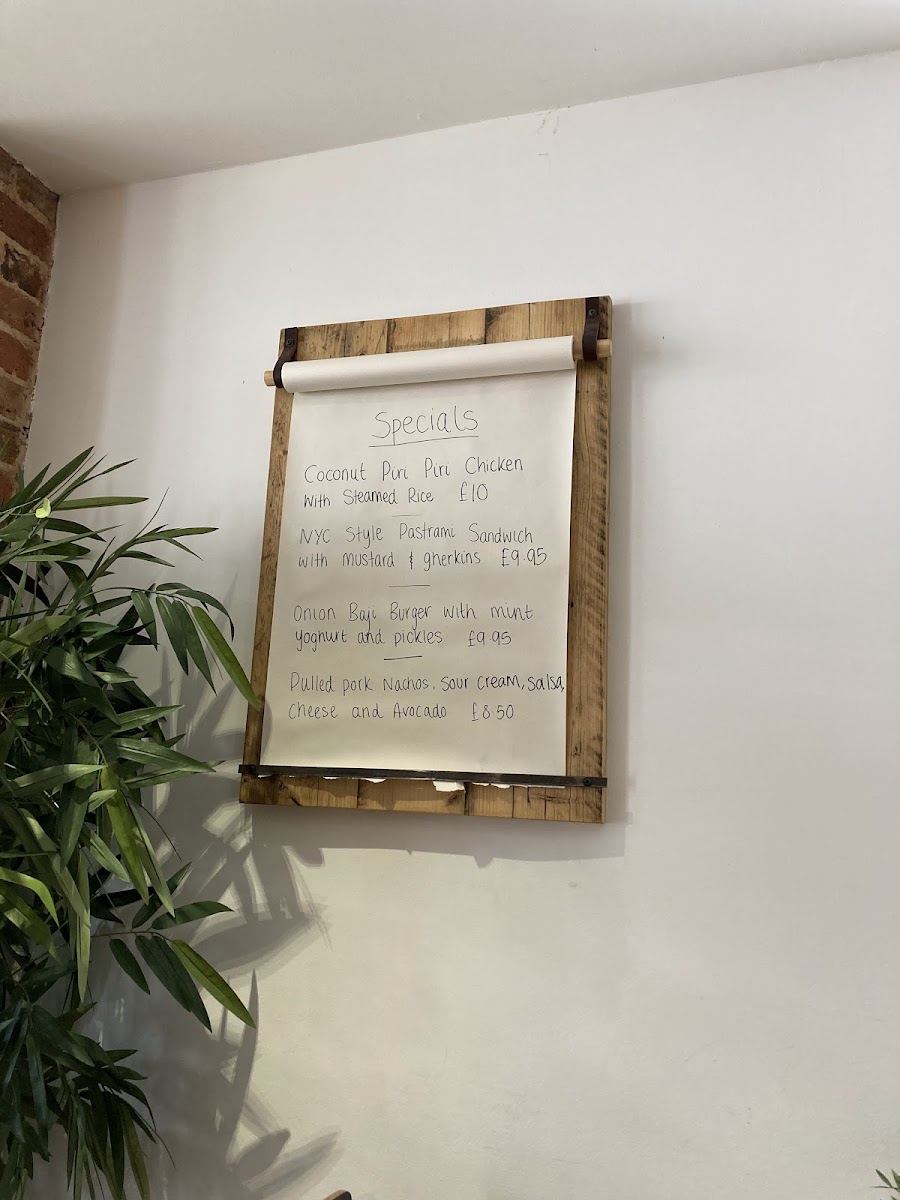 Specials
Coconut Piri Piri Chicken
With Steamed Rice £10
NYC Style Pastrami Sandwich
with mustard & gherkins £9.95
Onion Baji Burger with mint
yoghurt and pickles £9.95
Pulled pork Nachos, sour cream, salsa,
cheese and Avocado £8.50